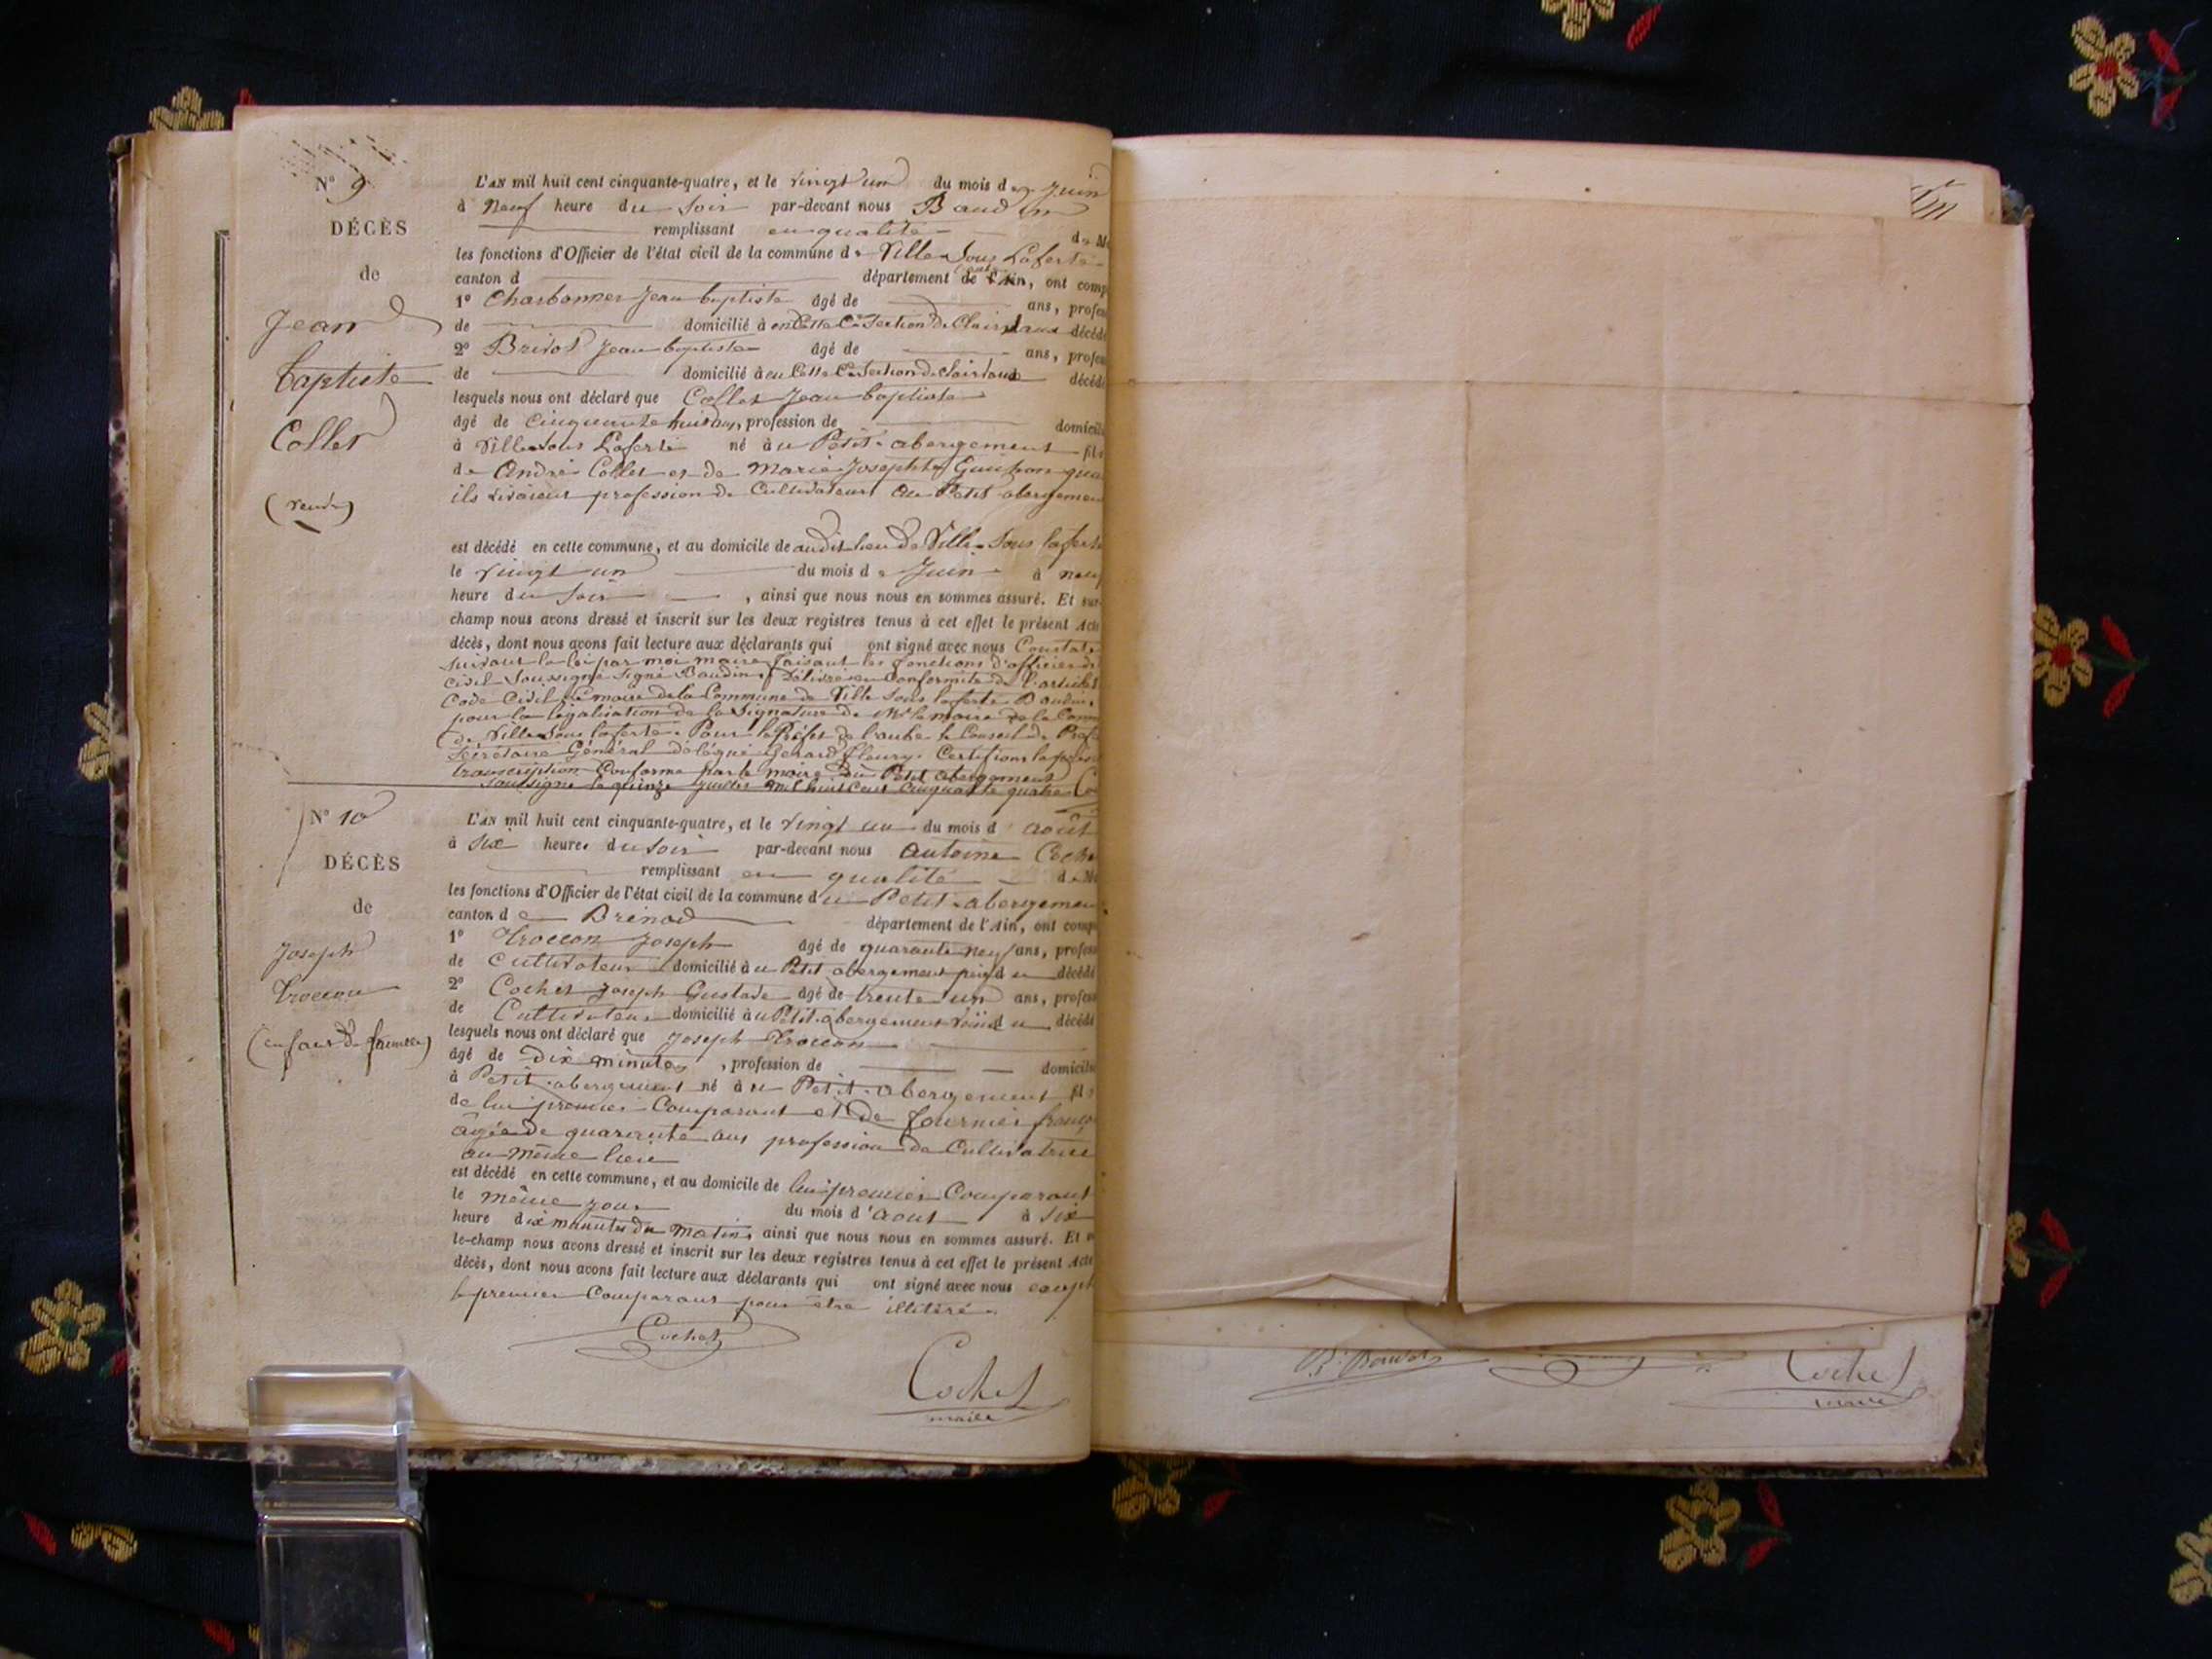 N° 9
DÉCÈS
de
Jean
baptiste
Collet
(veuf)
L'AN mil huit cent cinquante-quatre, et le vingt un du mois de Juin
à Neuf heure du soir par-devant nous Baudin
remplissant en qualité de M
les fonctions d'Officier de l'état civil de la commune de Ville Sous Laferté
canton d département de l'Ain, ont comp
1° Charbonner Jean baptiste âgé de ans, profess
de domicilié à en Cette Cne Section de Clairvaux décédé
2° Brivot Jean baptiste âgé de ans, profess
de domicilié à en Cette Cne Section de Clairvaux décédé
lesquels nous ont déclaré que Collet Jean baptiste
âgé de Cinquante huit ans, profession de domicilié
à Ville Sous Laferté né au Petit abergement fils
de André Collet et de Marie Josephte Guichon
ils vivaient profession de Cultivateurs au Petit abergemen
est décédé en cette commune, et au domicile de audit lieu de Ville Sous laferté
le vingt un du mois de Juin à neuf
heure du soir , ainsi que nous nous en sommes assuré. Et sur
champ nous avons dressé et inscrit sur les deux registres tenus à cet effet le présent Acte
décès, dont nous avons fait lecture aux déclarants qui ont signé avec nous Constaté
suivant la loi par moi maire faisant les fonctions d'officier de
Civil Soussigné Signé Baudin. Délivré en Conformité de l'article
Code Civil le maire de la Commune de Ville Sous laferté Baudin.
pour la légalisation de la Signature de Mr le maire de la Comm
de Ville Sous laferté. Pour le Préfet de l'aube le Conseil de Préf
Secrétaire Général délégué Gerard fleury. Certifions la
transcription Conforme par le maire du Petit abergement
soussigné le quinze Juillet mil huit cent Cinquante quatre Co
N° 10
DÉCÈS
de
Joseph
Troccon
(enfant de famille)
L'AN mil huit cent cinquante-quatre, et le vingt un du mois d août
à six heures du soir par-devant nous Antoine Coche
remplissant en qualité de M
les fonctions d'Officier de l'état civil de la commune du Petit-abergemen
canton de Brénod département de l'Ain, ont comp
1° Troccon Joseph âgé de quarante neuf ans, profess
de Cultivateur domicilié au Petit abergement père du décédé
2° Cochet Joseph Gustave âgé de trente un ans, profess
de Cultivateur domicilié au Petit-abergement voisin du décédé
lesquels nous ont déclaré que Joseph Troccon
âgé de Dix minutes , profession de domicilié
à Petit-abergement né au Petit-abergement fils
de lui premier Comparant et de fournier
âgée de quarante ans profession de Cultivatrice
au même lieu
est décédé en cette commune, et au domicile de lui premier Comparant
le même jour du mois d'août à six
heure dix minutes du Matin, ainsi que nous nous en sommes assuré. Et
le-champ nous avons dressé et inscrit sur les deux registres tenus à cet effet le présent Acte
décès, dont nous avons fait lecture aux déclarants qui ont signé avec nous except
le premier Comparant pour être illitéré.
Cochet
Cochet
maire
Cochet
maire